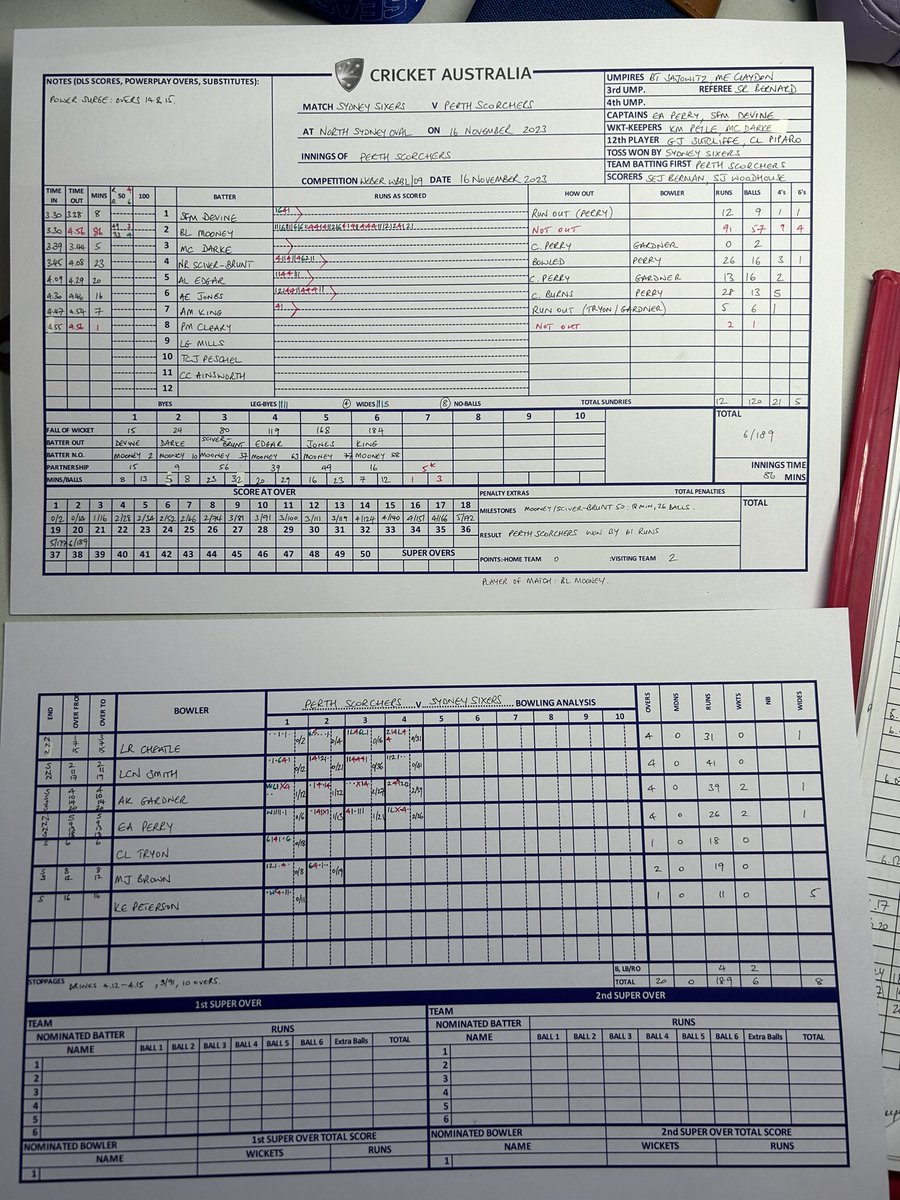 CRICKET AUSTRALIA
NOTES (DLS SCORES, POWERPLAY OVERS, SUBSTITUTES):
POWER SURGE: OVERS 14 & 15.
MATCH SYDNEY SIXERS V PERTH SCORCHERS
AT NORTH SYDNEY OVAL ON 16 NOVEMBER 2023
INNINGS OF PERTH SCORCHERS
COMPETITION WEBER WBBL/09 DATE 16 NOVEMBER 2023
UMPIRES BT SAJOWITZ, ME CLAYDON
3RD UMP. REFEREE SR BERNARD
4TH UMP.
CAPTAINS EA PERRY, SFM DEVINE
WKT-KEEPERS KM PEILE, MC DARKE
12TH PLAYER GJ SUTCLIFFE, CL PIPARO
TOSS WON BY SYDNEY SIXERS
TEAM BATTING FIRST PERTH SCORCHERS
SCORERS SEJ BERMAN, SJ WOODHOUSE
TIME IN TIME OUT MINS 50 100 BATTER RUNS AS SCORED HOW OUT BOWLER RUNS BALLS 4's 6's
3.30 3.38 8 1 SFM DEVINE RUN OUT (PERRY) 12 9 1 1
3.30 4.56 86 2 BL MOONEY NOT OUT 91 57 9 4
3.39 3.44 5 3 MC DARKE C. PERRY GARDNER 0 2
3.45 4.08 23 4 NR SCIVER-BRUNT BOWLED PERRY 26 16 3 1
4.09 4.29 20 5 AL EDGAR C. PERRY GARDNER 13 16 2
4.30 4.46 16 6 AE JONES C. BURNS PERRY 28 13 5
4.47 4.54 7 7 AM KING RUN OUT (TRYON/GARDNER) 5 6 1
4.55 4.56 1 8 PM CLEARY NOT OUT 2 1
9 LG MILLS
10 TCJ PESCHEL
11 CC AINSWORTH
12
BYES LEG-BYES WIDES NO-BALLS TOTAL SUNDRIES 12 120 21 5
1 2 3 4 5 6 7 8 9 10
FALL OF WICKET 15 24 80 119 168 184
BATTER OUT DEVINE DARKE SCIVER-BRUNT EDGAR JONES KING
BATTER N.O. MOONEY 2 MOONEY 10 MOONEY 37 MOONEY 63 MOONEY 77 MOONEY 88
PARTNERSHIP 15 9 56 39 49 16 5*
MINS/BALLS 8 13 5 8 23 32 20 29 16 23 7 12 1 3
TOTAL
6/189
INNINGS TIME
86 MINS
SCORE AT OVER
1 2 3 4 5 6 7 8 9 10 11 12 13 14 15 16 17 18
0/2 0/14 1/16 2/28 2/34 2/52 2/66 2/74 3/81 3/91 3/100 3/111 3/119 4/124 4/140 4/151 4/166 5/172
19 20 21 22 23 24 25 26 27 28 29 30 31 32 33 34 35 36
5/177 6/189
37 38 39 40 41 42 43 44 45 46 47 48 49 50 SUPER OVERS
PENALTY EXTRAS TOTAL PENALTIES
MILESTONES MOONEY/SCIVER-BRUNT 50: 18 MIN, 26 BALLS.
RESULT PERTH SCORCHERS WON BY 61 RUNS
POINTS: HOME TEAM 0 :VISITING TEAM 2
TOTAL
PLAYER OF MATCH: BL MOONEY.
PERTH SCORCHERS V SYDNEY SIXERS BOWLING ANALYSIS
END OVER FROM OVER TO BOWLER 1 2 3 4 5 6 7 8 9 10 OVERS MDNS RUNS WKTS NB WIDES
LR CHEATLE 0/2 0/4 0/31 4 0 31 0 1
LCN SMITH 0/12 0/21 0/36 0/41 4 0 41 0
AK GARDNER 1/12 1/22 2/39 4 0 39 2 1
EA PERRY 0/6 1/13 1/21 2/26 4 0 26 2 1
CL TRYON 0/18 1 0 18 0
MJ BROWN 0/8 0/19 2 0 19 0
S 16 16 KE PETERSON 0/11 1 0 11 0 5
B, LB/RO 4 2
STOPPAGES DRINKS 4.12-4.15, 3/91, 10 OVERS. TOTAL 20 0 189 6 8
1st SUPER OVER 2nd SUPER OVER
TEAM TEAM
NOMINATED BATTER RUNS NOMINATED BATTER RUNS
NAME BALL 1 BALL 2 BALL 3 BALL 4 BALL 5 BALL 6 Extra Balls TOTAL NAME BALL 1 BALL 2 BALL 3 BALL 4 BALL 5 BALL 6 Extra Balls TOTAL
1 1
2 2
3 3
4 4
5 5
6 6
NOMINATED BOWLER 1st SUPER OVER TOTAL SCORE NOMINATED BOWLER 2nd SUPER OVER TOTAL SCORE
NAME WICKETS RUNS NAME WICKETS RUNS
1 1